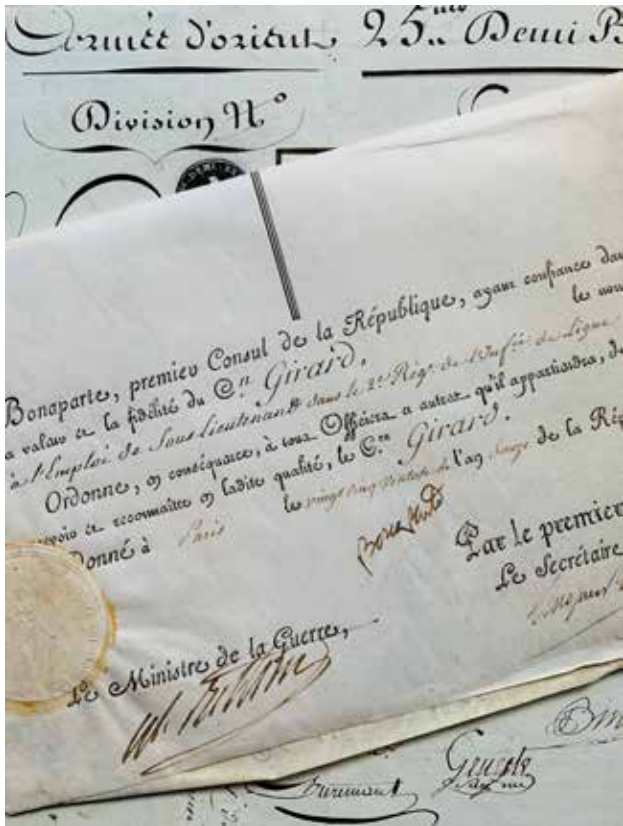 Armée d'orient 25.me Demi B
Division N.o
Bonaparte, premier Consul de la République, ayant confiance dan
a valeur et la fidélité du C.en Girard, le nom
à l'Emploi de Sous-lieutenant dans le 2e Rég.t de l'Infie de Ligne
Ordonne, en conséquence, à tous Officiers et autres qu'il appartiendra, de
et reconnaître en ladite qualité, le C.en Girard.
Donné à Paris le vingt cinq Ventôse de l'an de la Rép
Bonaparte
Par le premier
Le Secrétaire
Le Ministre de la Guerre,